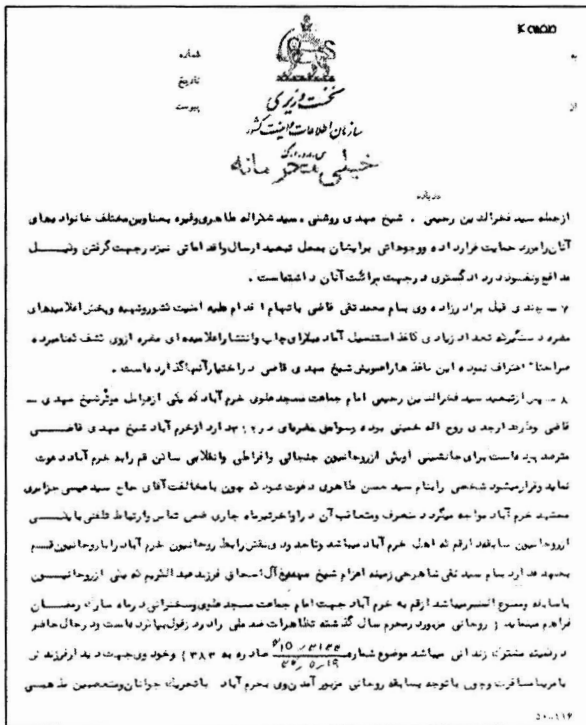 به
از
شماره
تاریخ
پیوست
نخست وزیری
سازمان اطلاعات و امنیت کشور
خیلی محرمانه
درباره
ازجمله سید فخرالدین رحیمی ، شیخ مهدی روشنی ، سید شکراله طاهری وغیره بعناوین مختلف خانواده های
آنان را مورد حمایت قرار داده و وجوهاتی برایشان بمحل تبعید ارسال واقداماتی نیز درجهت گرفتن وکیل
مدافع ونفوذ در دادگستری درجهت برائت آنان داشته است .
۷ ـ چندی قبل برادرزاده وی بنام محمد تقی قاضی باتهام اقدام علیه امنیت کشور وتهیه وپخش اعلامیه های
مضره دستگیر که تعداد زیادی کاغذ استنسیل آماده برای چاپ وانتشار اعلامیه های مضره ازوی کشف نامبرده
صراحتا" اعتراف نموده این کاغذها را عمویش شیخ مهدی قاضی در اختیار آنها گذارده است .
۸ ـ پس ازتبعید سید فخرالدین رحیمی امام جماعت مسجد علوی خرم آباد که یکی ازعوامل موثر شیخ مهدی ـ
قاضی وطرفدار جدی روح اله خمینی بوده وسوابق مضره ای در دارد ازخرم آباد شیخ مهدی قاضی
مترصد بوده است برای جانشینی اویکی ازروحانیون جنجالی وافراطی وانقلابی ساکن قم رابه خرم آباد دعوت
نماید وقرار میشود شخصی را بنام سید حسن طاهری دعوت شود که چون بامخالفت آقای حاج سید عیسی جزایری
مجتهد خرم آباد مواجه میگردد منصرف ومتعاقب آن در اواخر تیرماه جاری ضمن تماس وارتباط تلفنی بایکی
ازروحانیون سابقه دار قم که اهل خرم آباد میباشد وتاحدودی نقش رابط روحانیون خرم آباد را با روحانیون قم
بعهده دارد بنام سید تقی شاهرخی زمینه اعزام شیخ مهدی آل اسحاق فرزند عبدالکریم که یکی ازروحانیون
باسابقه وممنوع المنبر میباشد ازقم به خرم آباد جهت امام جماعت مسجد علوی وسخنرانی در ماه مبارک رمضان
فراهم مینماید ( روحانی مزبور در محرم سال گذشته تظاهرات ضد ملی را در دزفول بپا کرده است ودر حال حاضر
در کمیته مشترک زندانی میباشد موضوع شماره صادره به ۳۸۳ ) وخود وی جهت دیدار فرزندش
بامریکا مسافرت وچون باتوجه بسابقه روحانی مزبور آمدن وی بخرم آباد باتحریک جوانان ومتعصبین مذهبی
۵۰-۱۱۶